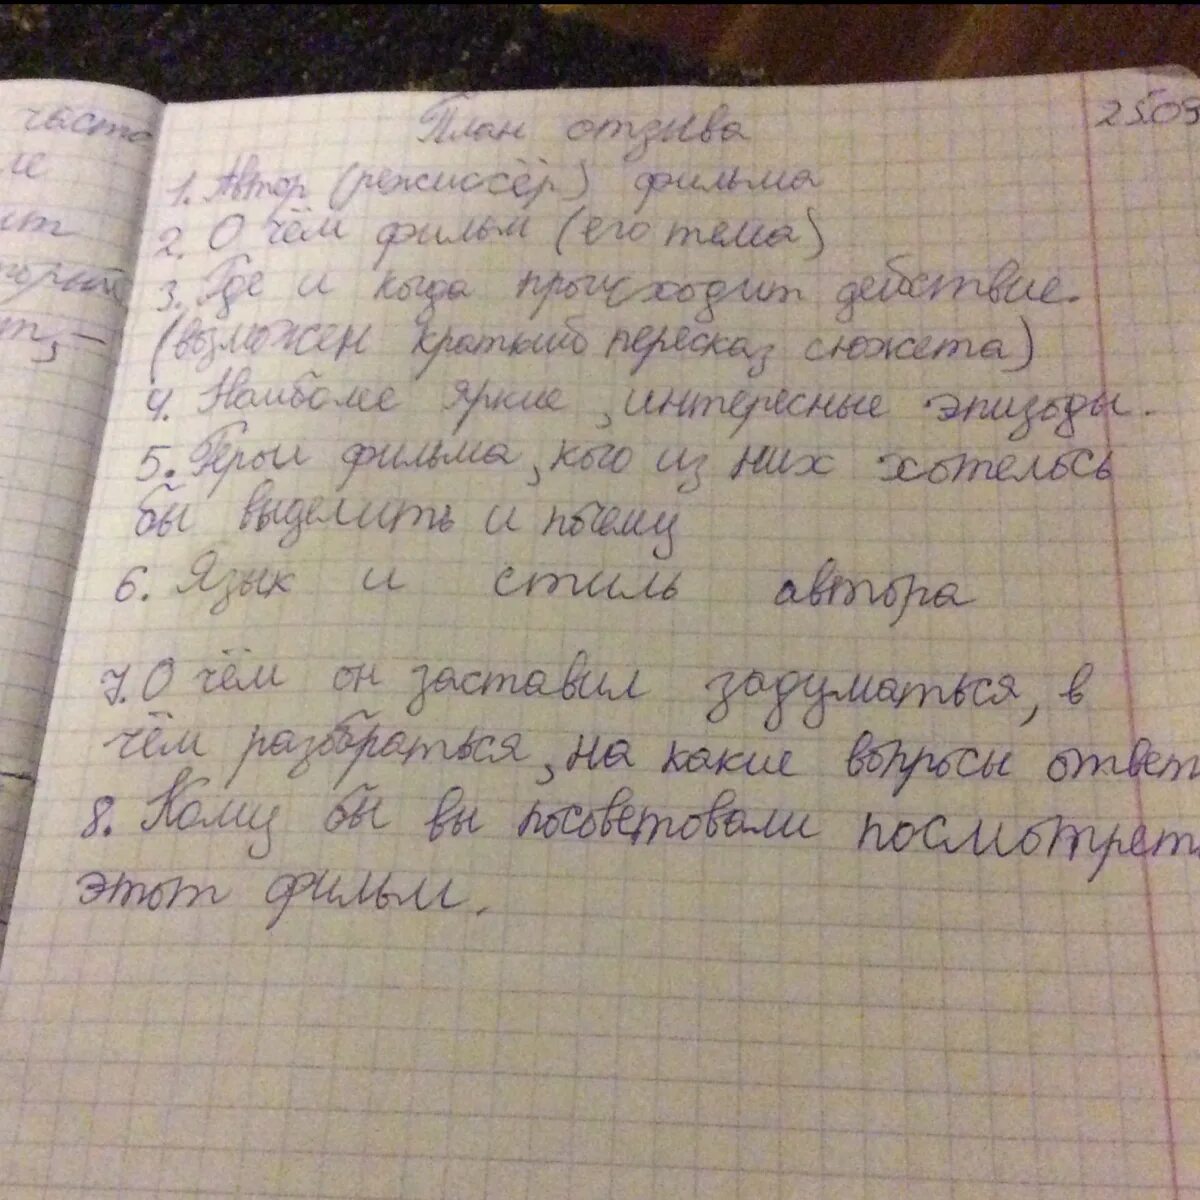 План отзыва
25.09
1. Автор (режиссёр) фильма
2. О чём фильм (его тема)
3. Где и когда происходит действие.
(возможен краткий пересказ сюжета)
4. Наиболее яркие, интересные эпизоды.
5. Герои фильма, кого из них хотелось
бы выделить и почему
6. Язык и стиль автора
7. О чём он заставил задуматься, в
чём разобраться, на какие вопросы ответ
8. Кому бы вы посоветовали посмотрет
этот фильм.